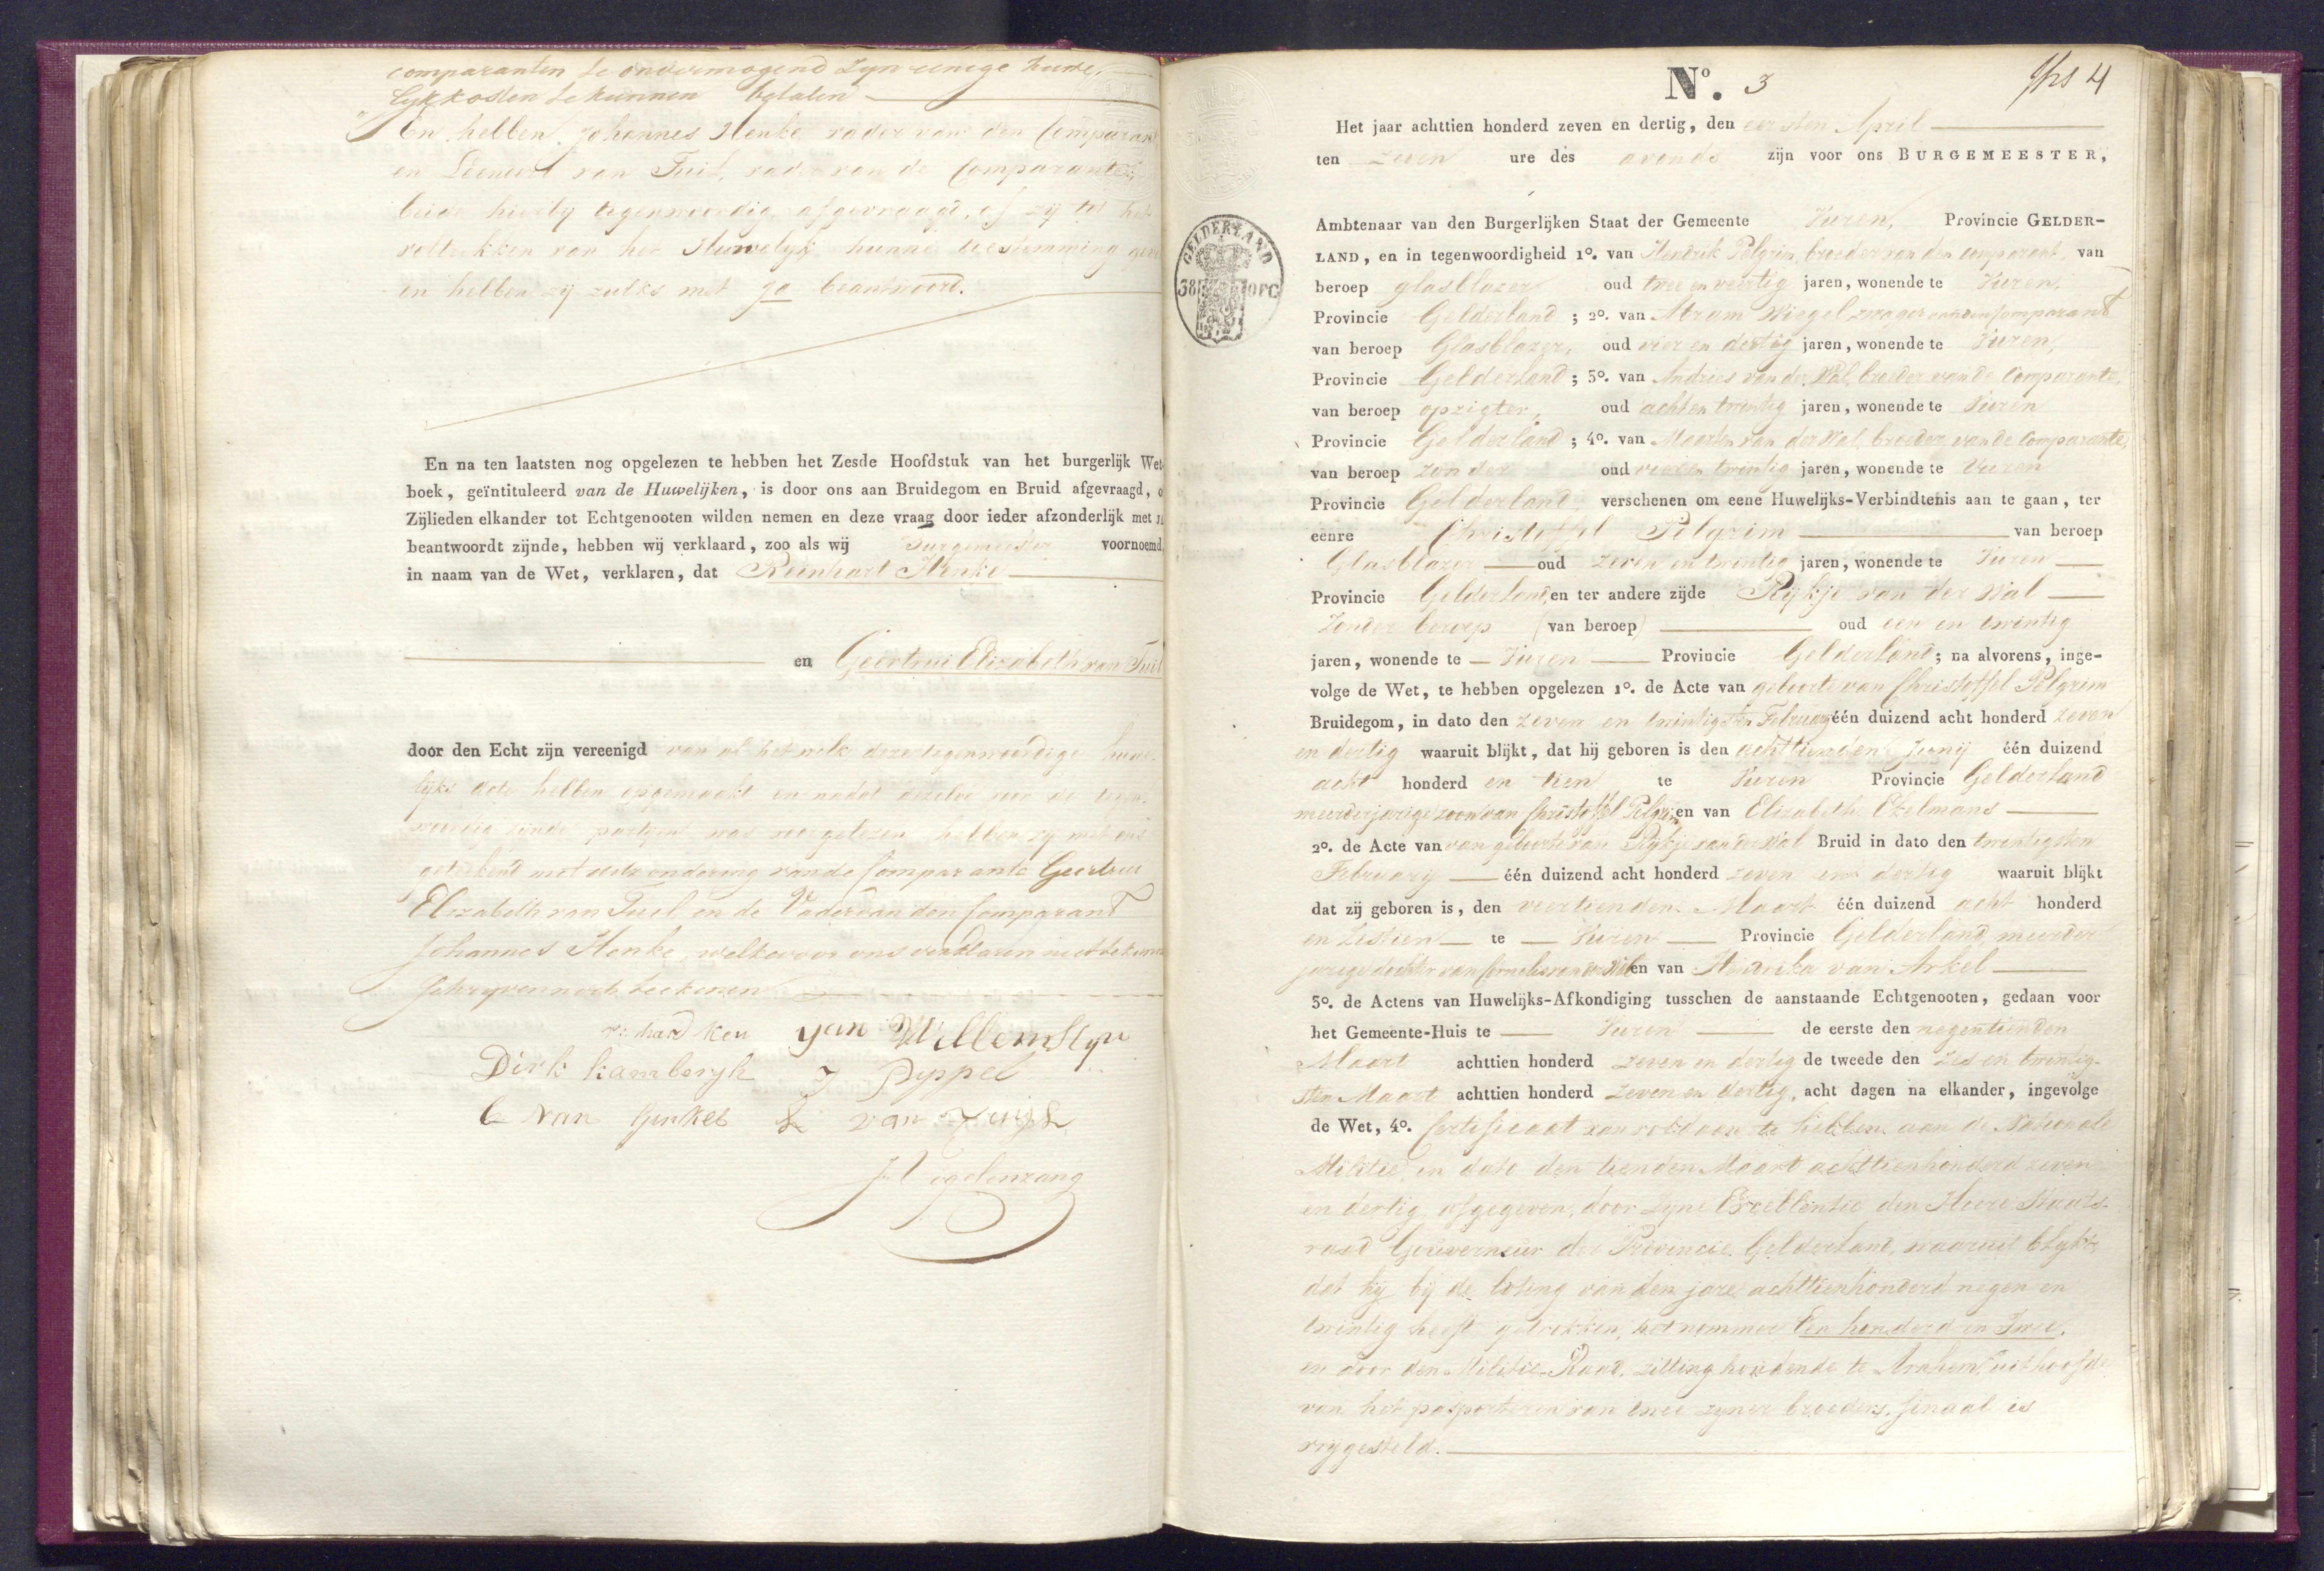 comparanten te onvermogend zyn eenige huwe,
lyk kosten te kunnen betalen
En hebben Johannes Henke vader van den Comparan
en Leendert van Tuil, vader van de Comparante,
beide hierby tegenwoordig, afgevraagd, of zij tot het
voltrekken van het Huwelyk hunne toestemming geve
en hebben zij zulks met ja beantwoord.
En na ten laatsten nog opgelezen te hebben het Zesde Hoofdstuk van het burgerlijk Wet-
boek, geïntituleerd van de Huwelijken, is door ons aan Bruidegom en Bruid afgevraagd, o
Zijlieden elkander tot Echtgenooten wilden nemen en deze vraag door ieder afzonderlijk met
beantwoordt zijnde, hebben wij verklaard, zoo als wij Burgemeester voornoemd,
in naam van de Wet, verklaren, dat Reinhart Henke
en Geertrui Elizabeth van Tuil
door den Echt zijn vereenigd van al het welk deze tegenwoordige huwe-
lijks acte hebben opgemaakt en nadat dezelve voor de tegen-
woordig zijnde partijen was voorgelezen hebben zij met ons
getekend met uitzondering van de Comparante Geertrui
Elizabeth van Tuil en de Vader van den Comparant
Johannes Henke, welke voor ons verklaren niet te kunn
schryven noch teekenen
Jan Willemstyn
Dirk kambergh J Pippel
C van Ginkel van Zuijl
J Vogelenzang
No. 3
4
Het jaar achttien honderd zeven en dertig, den eersten April
ten zeven ure des avonds zijn voor ons BURGEMEESTER,
Ambtenaar van den Burgerlijken Staat der Gemeente Vuren, Provincie GELDER-
LAND, en in tegenwoordigheid 1o. van Hendrik Pelgrim, broeder van den comparant, van
beroep glasblazer oud twee en veertig jaren, wonende te Vuren,
Provincie Gelderland; 2o. van Abram Wiegel zwager van den Comparant
van beroep Glasblazer, oud vier en dertig jaren, wonende te Vuren,
Provincie Gelderland; 3o. van Andries van der Wal, broeder van de Comparante,
van beroep opzigter, oud acht en twintig jaren, wonende te Vuren
Provincie Gelderland; 4o. van Maarten van der Wal, broeder van de Comparante,
van beroep zonder oud vier en twintig jaren, wonende te Vuren
Provincie Gelderland, verschenen om eene Huwelijks-Verbindtenis aan te gaan, ter
eenre Christoffel Pelgrim van beroep
Glasblazer oud zeven en twintig jaren, wonende te Vuren
Provincie Gelderland, en ter andere zijde Rijkje van der Wal
Zonder beroep (van beroep) oud een en twintig
jaren, wonende te Vuren Provincie Gelderland; na alvorens, inge-
volge de Wet, te hebben opgelezen 1o. de Acte van geboorte van Christoffel Pelgrim
Bruidegom, in dato den zeven en twintigsten February één duizend acht honderd zeven
en dertig waaruit blijkt, dat hij geboren is den achttienden Junij één duizend
acht honderd en tien te Vuren Provincie Gelderland
meerderjarige zoon van Christoffel Pelgrim en van Elizabeth Ekelmans
2o. de Acte van van geboorte van Rijkje van der Wal Bruid in dato den twintigsten
February één duizend acht honderd zeven en dertig waaruit blijkt
dat zij geboren is, den veertienden Maart één duizend acht honderd
en Zestien te Vuren Provincie Gelderland, meerder
jarige dochter van Cornelis van der Wal en van Hendrika van Arkel
3o. de Actens van Huwelijks-Afkondiging tusschen de aanstaande Echtgenooten, gedaan voor
het Gemeente-Huis te Vuren de eerste den negentienden
Maart achttien honderd zeven en dertig de tweede den zes en twintig-
sten Maart achttien honderd zeven en dertig, acht dagen na elkander, ingevolge
de Wet, 4o. Certificaat van voldaan te hebben aan de Nationale
Militie, in dato den tienden Maart achttienhonderd zeven
en dertig, afgegeven, door Zyne Excellentie den Heere Staats-
raad Gouverneur der Provincie Gelderland, waaruit blykt,
dat hij bij de loting van den jare achttienhonderd negen en
twintig heeft getrokken, het nommer Een honderd en Twee,
en door den Militie-Raad, zitting houdende te Arnhem, uithoofde
van het pasporteren van twee zyner broeders, finaal is
vrijgesteld.
GELDERLAND
38